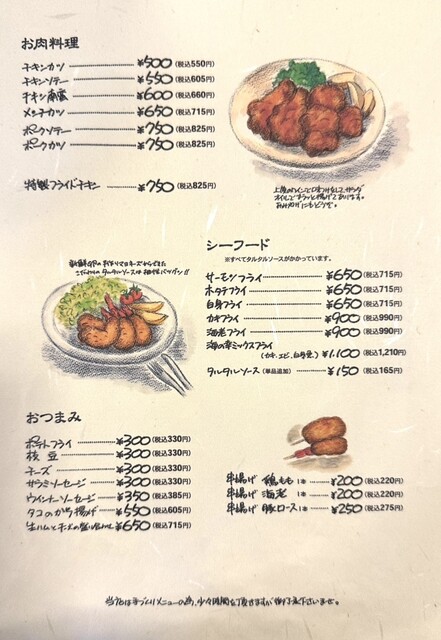 お肉料理
チキンカツ ¥500(税込550円)
チキンソテー ¥550(税込605円)
チキン南蛮 ¥600(税込660円)
メンチカツ ¥650(税込715円)
ポークソテー ¥750(税込825円)
ポークカツ ¥750(税込825円)
特製フライドチキン ¥750(税込825円)
シーフード
※すべてタルタルソースがかかっています。
サーモンフライ ¥650(税込715円)
ホタテフライ ¥650(税込715円)
白身フライ ¥650(税込715円)
カキフライ ¥900(税込990円)
海老フライ ¥900(税込990円)
海の幸ミックスフライ
(カキ、エビ、白身魚) ¥1,100(税込1,210円)
タルタルソース(単品追加) ¥150(税込165円)
おつまみ
ポテトフライ ¥300(税込330円)
枝豆 ¥300(税込330円)
チーズ ¥300(税込330円)
サラミソーセージ ¥300(税込330円)
ウインナーソーセージ ¥350(税込385円)
タコのから揚げ ¥550(税込605円)
生ハムとチーズの盛り合わせ ¥650(税込715円)
串揚げ 鶏もも 1本 ¥200(税込220円)
串揚げ 海老 1本 ¥200(税込220円)
串揚げ 豚ロース 1本 ¥250(税込275円)